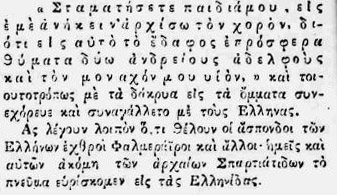 « Σταματήσετε παιδιάμου, εἰς
ἐμὲ ἀνήκει ν' ἀρχίσω τὸν χορὸν, δι-
ότι εἰς αὐτὸ τὸ ἔδαφος ἐπρόσφερα
θύματα δύω ἀνδρείους ἀδελφοὺς
καὶ τὸν μοναχόν μου υἱὸν, » καὶ τοι-
ουτοτρόπως μὲ τὰ δάκρυα εἰς τὰ ὄμματα συν-
εχόρευε καὶ συναγάλλετο μὲ τοὺς Ἕλληνας.
Ἂς λέγουν λοιπὸν ὅ,τι θέλουν οἱ ἄσπονδοι τῶν
Ἑλλήνων ἐχθροὶ Φαλμεράϊροι καὶ ἄλλοι· ἡμεῖς καὶ
αὐτῶν ἀκόμη τῶν ἀρχαίων Σπαρτιατίδων τὸ
πνεῦμα εὑρίσκομεν εἰς τὰς Ἑλληνίδας.